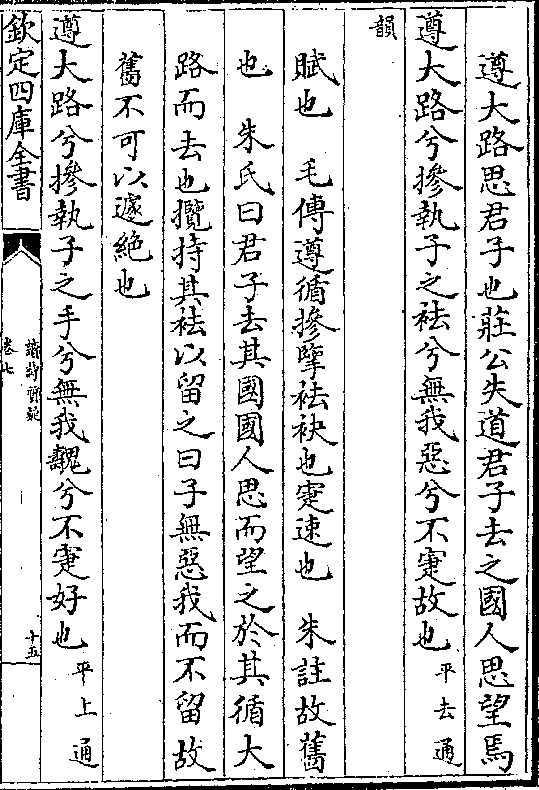 遵大路思君子也莊公失道君子去之國人思望焉
遵大路兮摻執子之袪兮無我惡兮不寁故也 平去通
韻
賦也 毛傳遵循摻擥袪袂也寁速也 朱註故舊
也 朱氏曰君子去其國國人思而望之於其循大
路而去也攬持其袪以留之曰子無惡我而不留故
舊不可以遽絶也
遵大路兮摻執子之手兮無我魗兮不寁好也 平上通
欽定四庫全書
讀詩質疑
卷七
十五